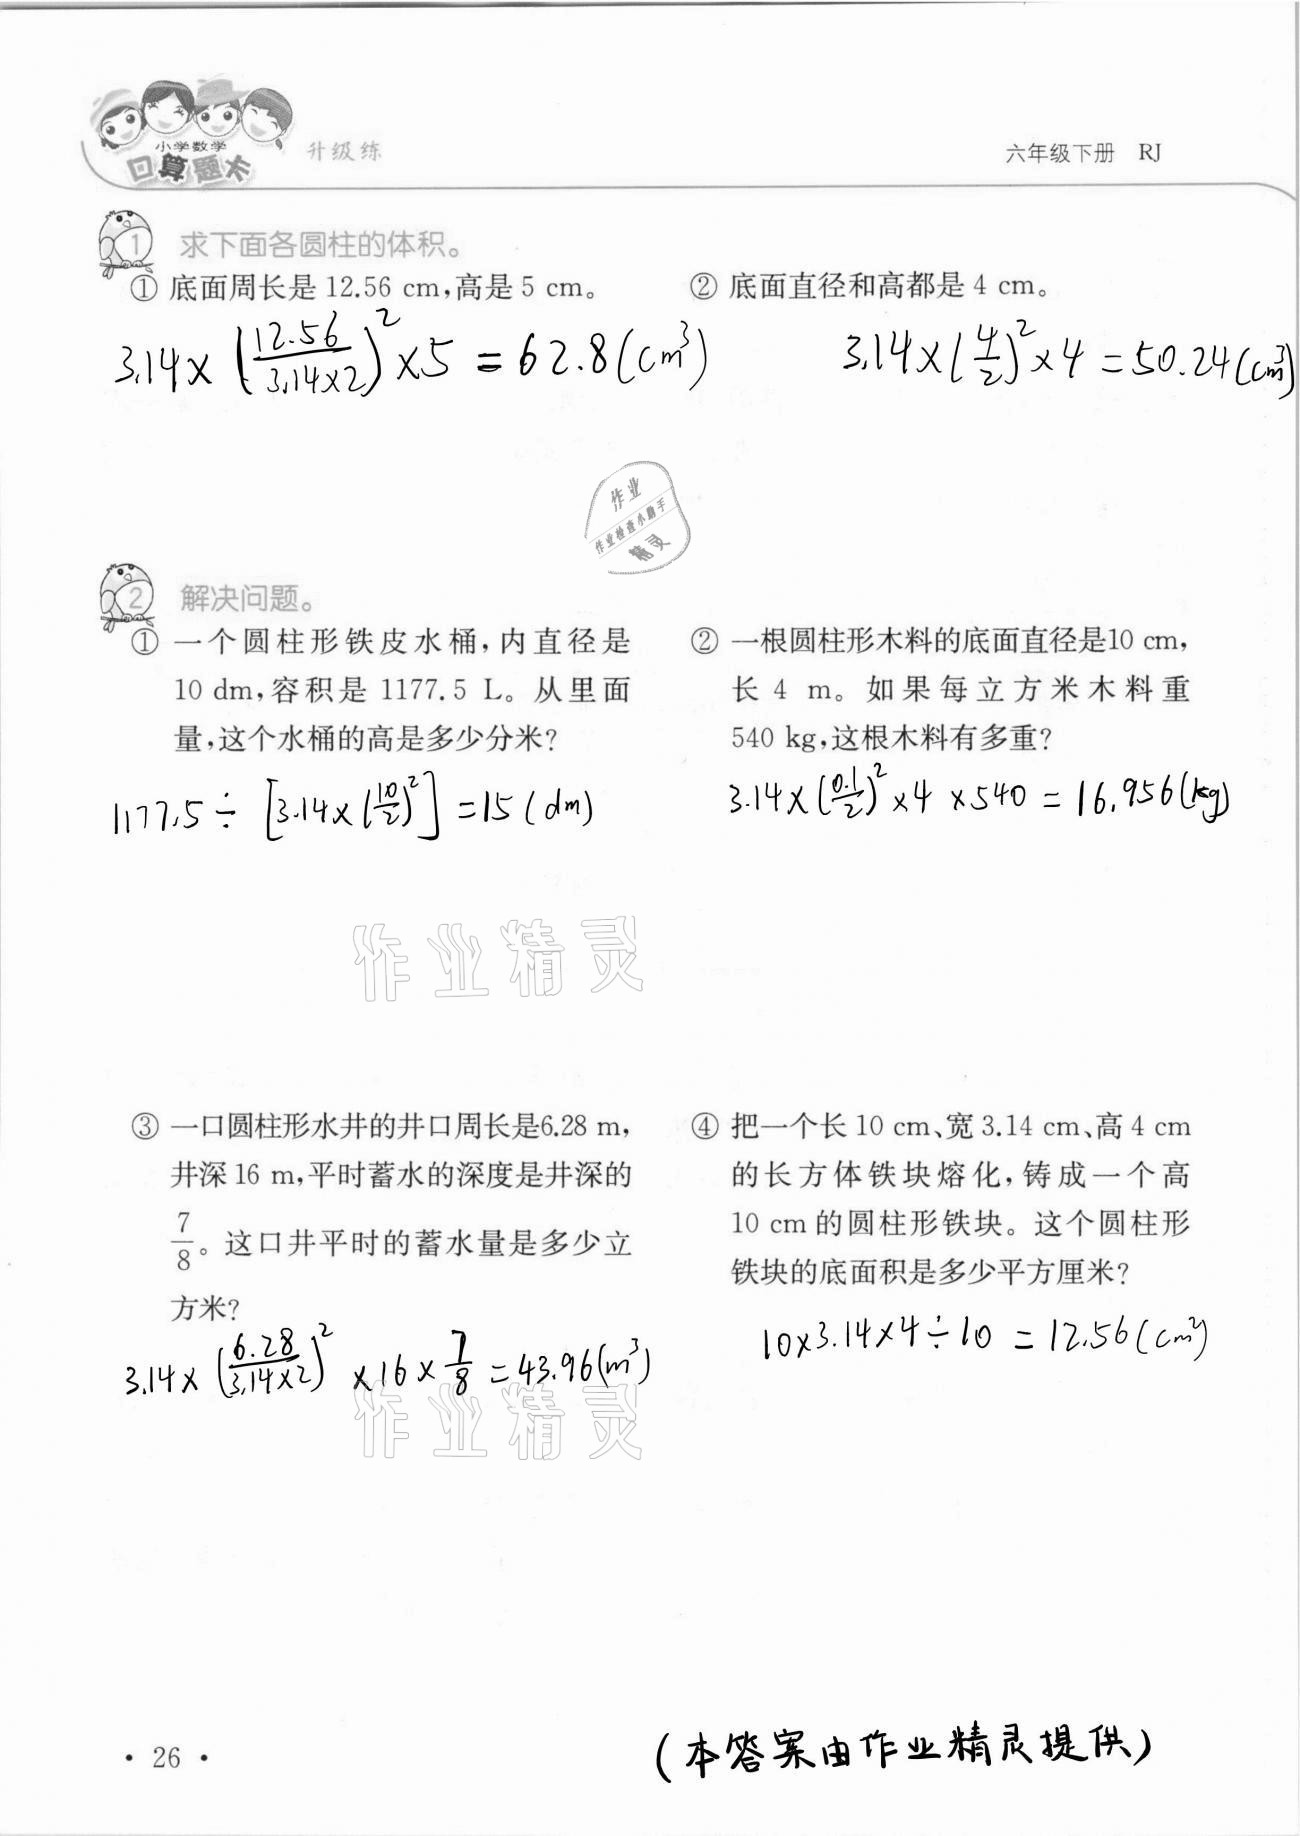 小学数学
口算题卡
升级练
六年级下册 RJ
1 求下面各圆柱的体积。
① 底面周长是 12.56 cm,高是 5 cm。
3.14×(12.56/3.14×2)²×5=62.8(cm³)
② 底面直径和高都是 4 cm。
3.14×(4/2)²×4=50.24(cm³)
作业
作业检查小助手
精灵
2 解决问题。
① 一个圆柱形铁皮水桶,内直径是
10 dm,容积是 1177.5 L。从里面
量,这个水桶的高是多少分米?
1177.5÷[3.14×(10/2)²]=15(dm)
② 一根圆柱形木料的底面直径是10 cm,
长 4 m。如果每立方米木料重
540 kg,这根木料有多重?
3.14×(0.1/2)²×4×540=16.956(kg)
作业精灵
③ 一口圆柱形水井的井口周长是6.28 m,
井深 16 m,平时蓄水的深度是井深的
7/8。这口井平时的蓄水量是多少立
方米?
3.14×(6.28/3.14×2)²×16×7/8=43.96(m³)
④ 把一个长 10 cm、宽 3.14 cm、高 4 cm
的长方体铁块熔化,铸成一个高
10 cm 的圆柱形铁块。这个圆柱形
铁块的底面积是多少平方厘米?
10×3.14×4÷10=12.56(cm²)
作业精灵
• 26 •
(本答案由作业精灵提供)